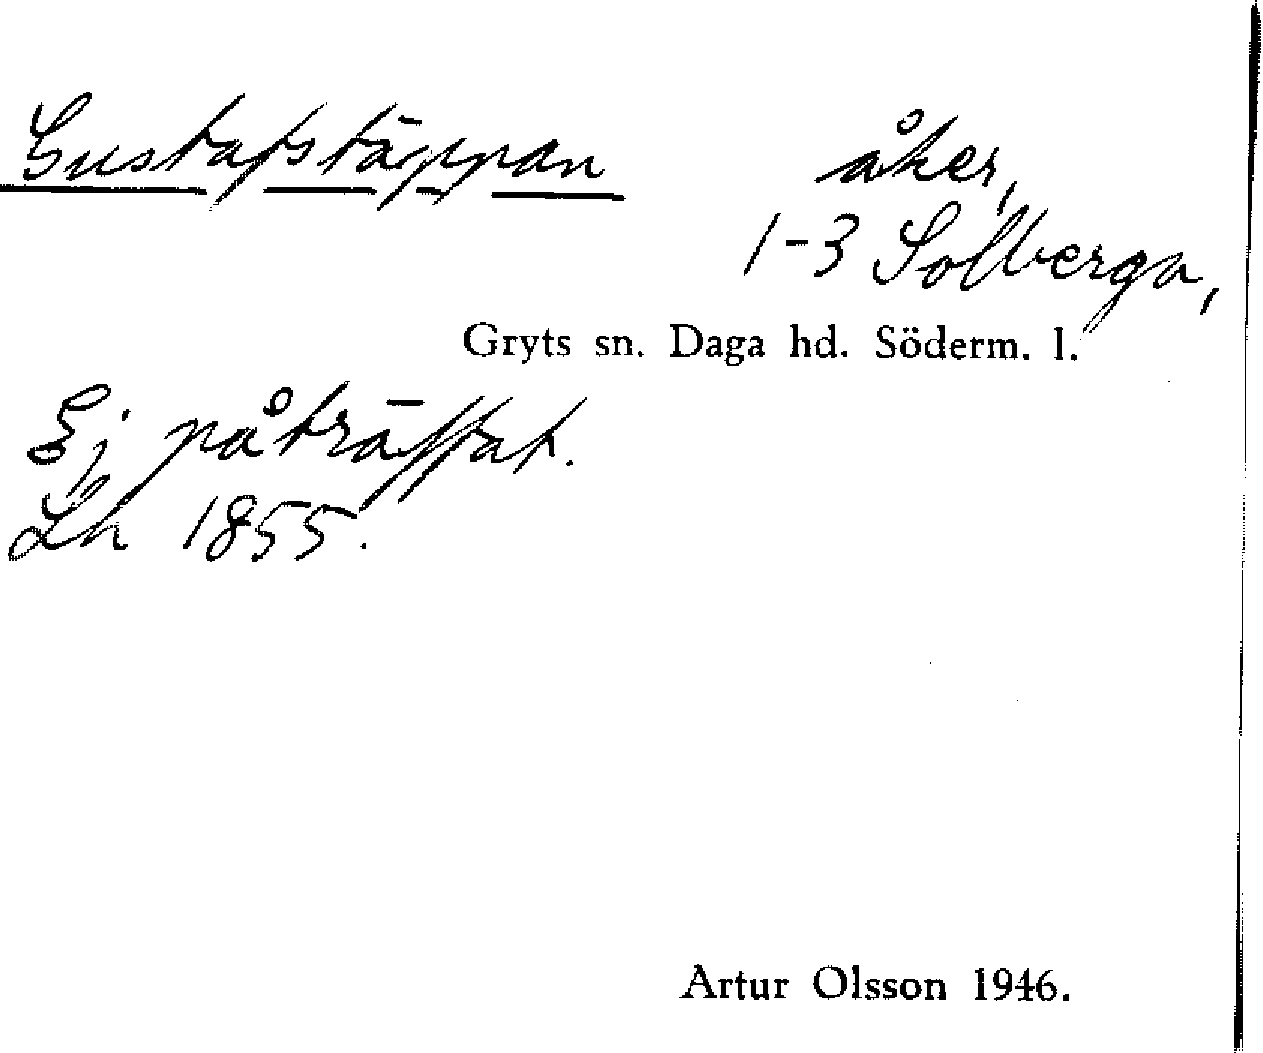 Gustafstäppan
åker,
1-3 Solberga,
Gryts sn. Daga hd. Söderm. l.
Ej påträffat.
Lh 1855.
Artur Olsson 1946.